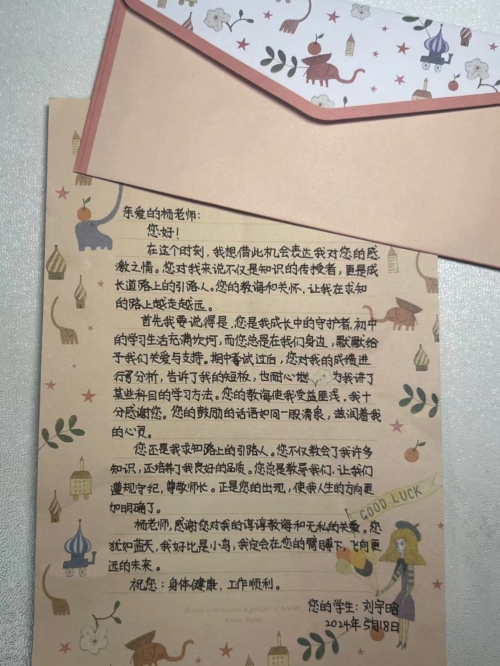 亲爱的杨老师:
您好!
在这个时刻,我想借此机会表达我对您的感
激之情。您对我来说不仅是知识的传授者,更是成
长道路上的引路人。您的教诲和关怀,让我在求知
的路上越走越远。
首先我要说得是,您是我成长中的守护者,初中
的学习生活充满坎坷,而您总是在我们身边,默默给
予我们关爱与支持。期中考试过后,您对我的成绩进
行了分析,告诉了我的短板,也耐心地为我讲了
某些科目的学习方法。您的教诲使我受益匪浅,我十
分感谢您。您的鼓励的话语如同一股清泉,滋润着我
的心灵。
您还是我求知路上的引路人。您不仅教会了我许多
知识,还培养了我良好的品质。您总是教导我们,让我们
遵规守纪,尊敬师长。正是您的出现,使我人生的方向更
加明确了。
杨老师,感谢您对我的谆谆教诲和无私的关爱。您
犹如蓝天,我好比是小鸟,我定会在您的臂膊下,飞向更
远的未来。
祝您:身体健康,工作顺利。
您的学生:刘宇晗
2024年5月18日
GOOD LUCK